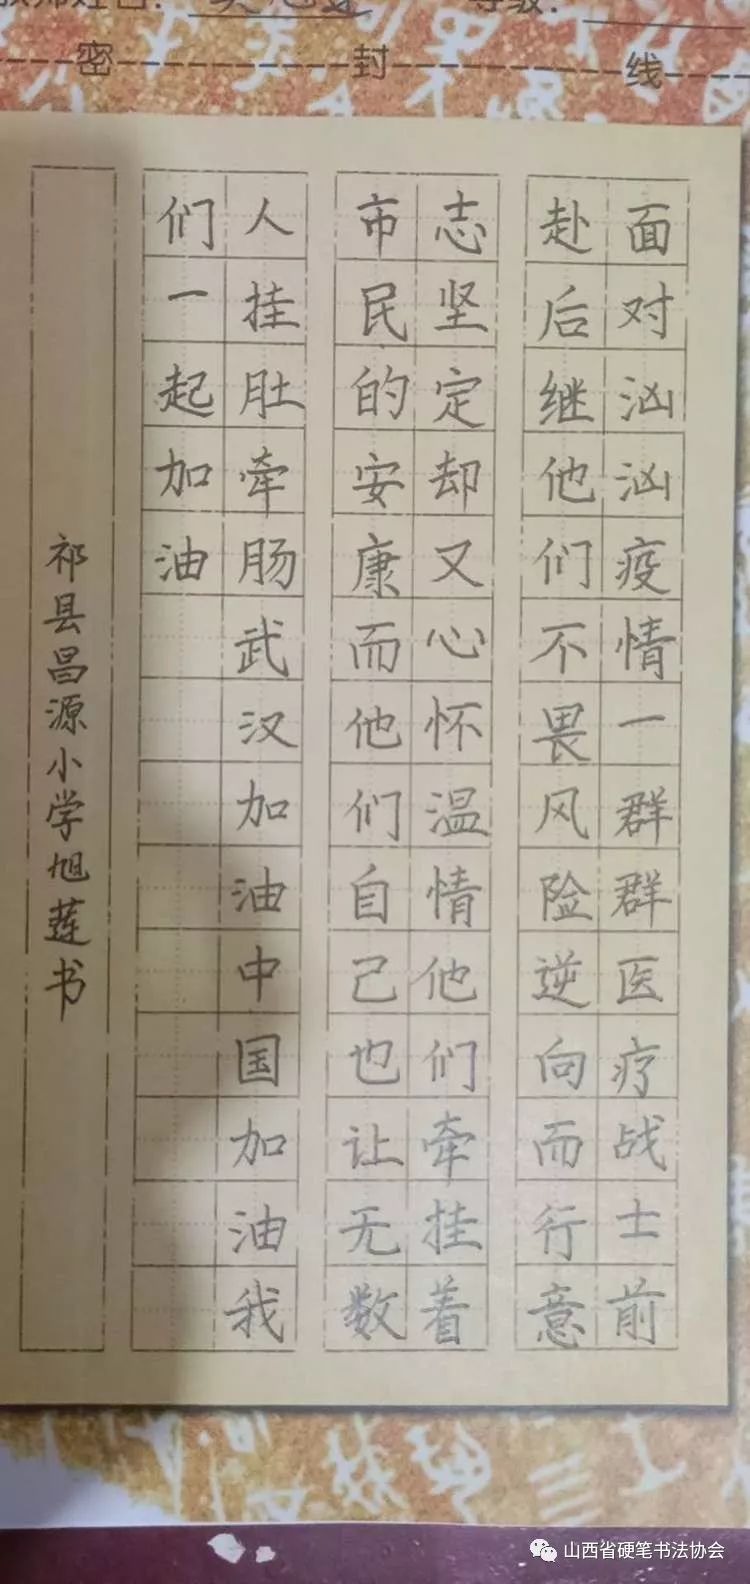 密封线
面对汹汹疫情一群群医疗战士前
赴后继他们不畏风险逆向而行意
志坚定却又心怀温情他们牵挂着
市民的安康而他们自己也让无数
人挂肚牵肠武汉加油中国加油我
们一起加油
祁县昌源小学旭莲书
山西省硬笔书法协会